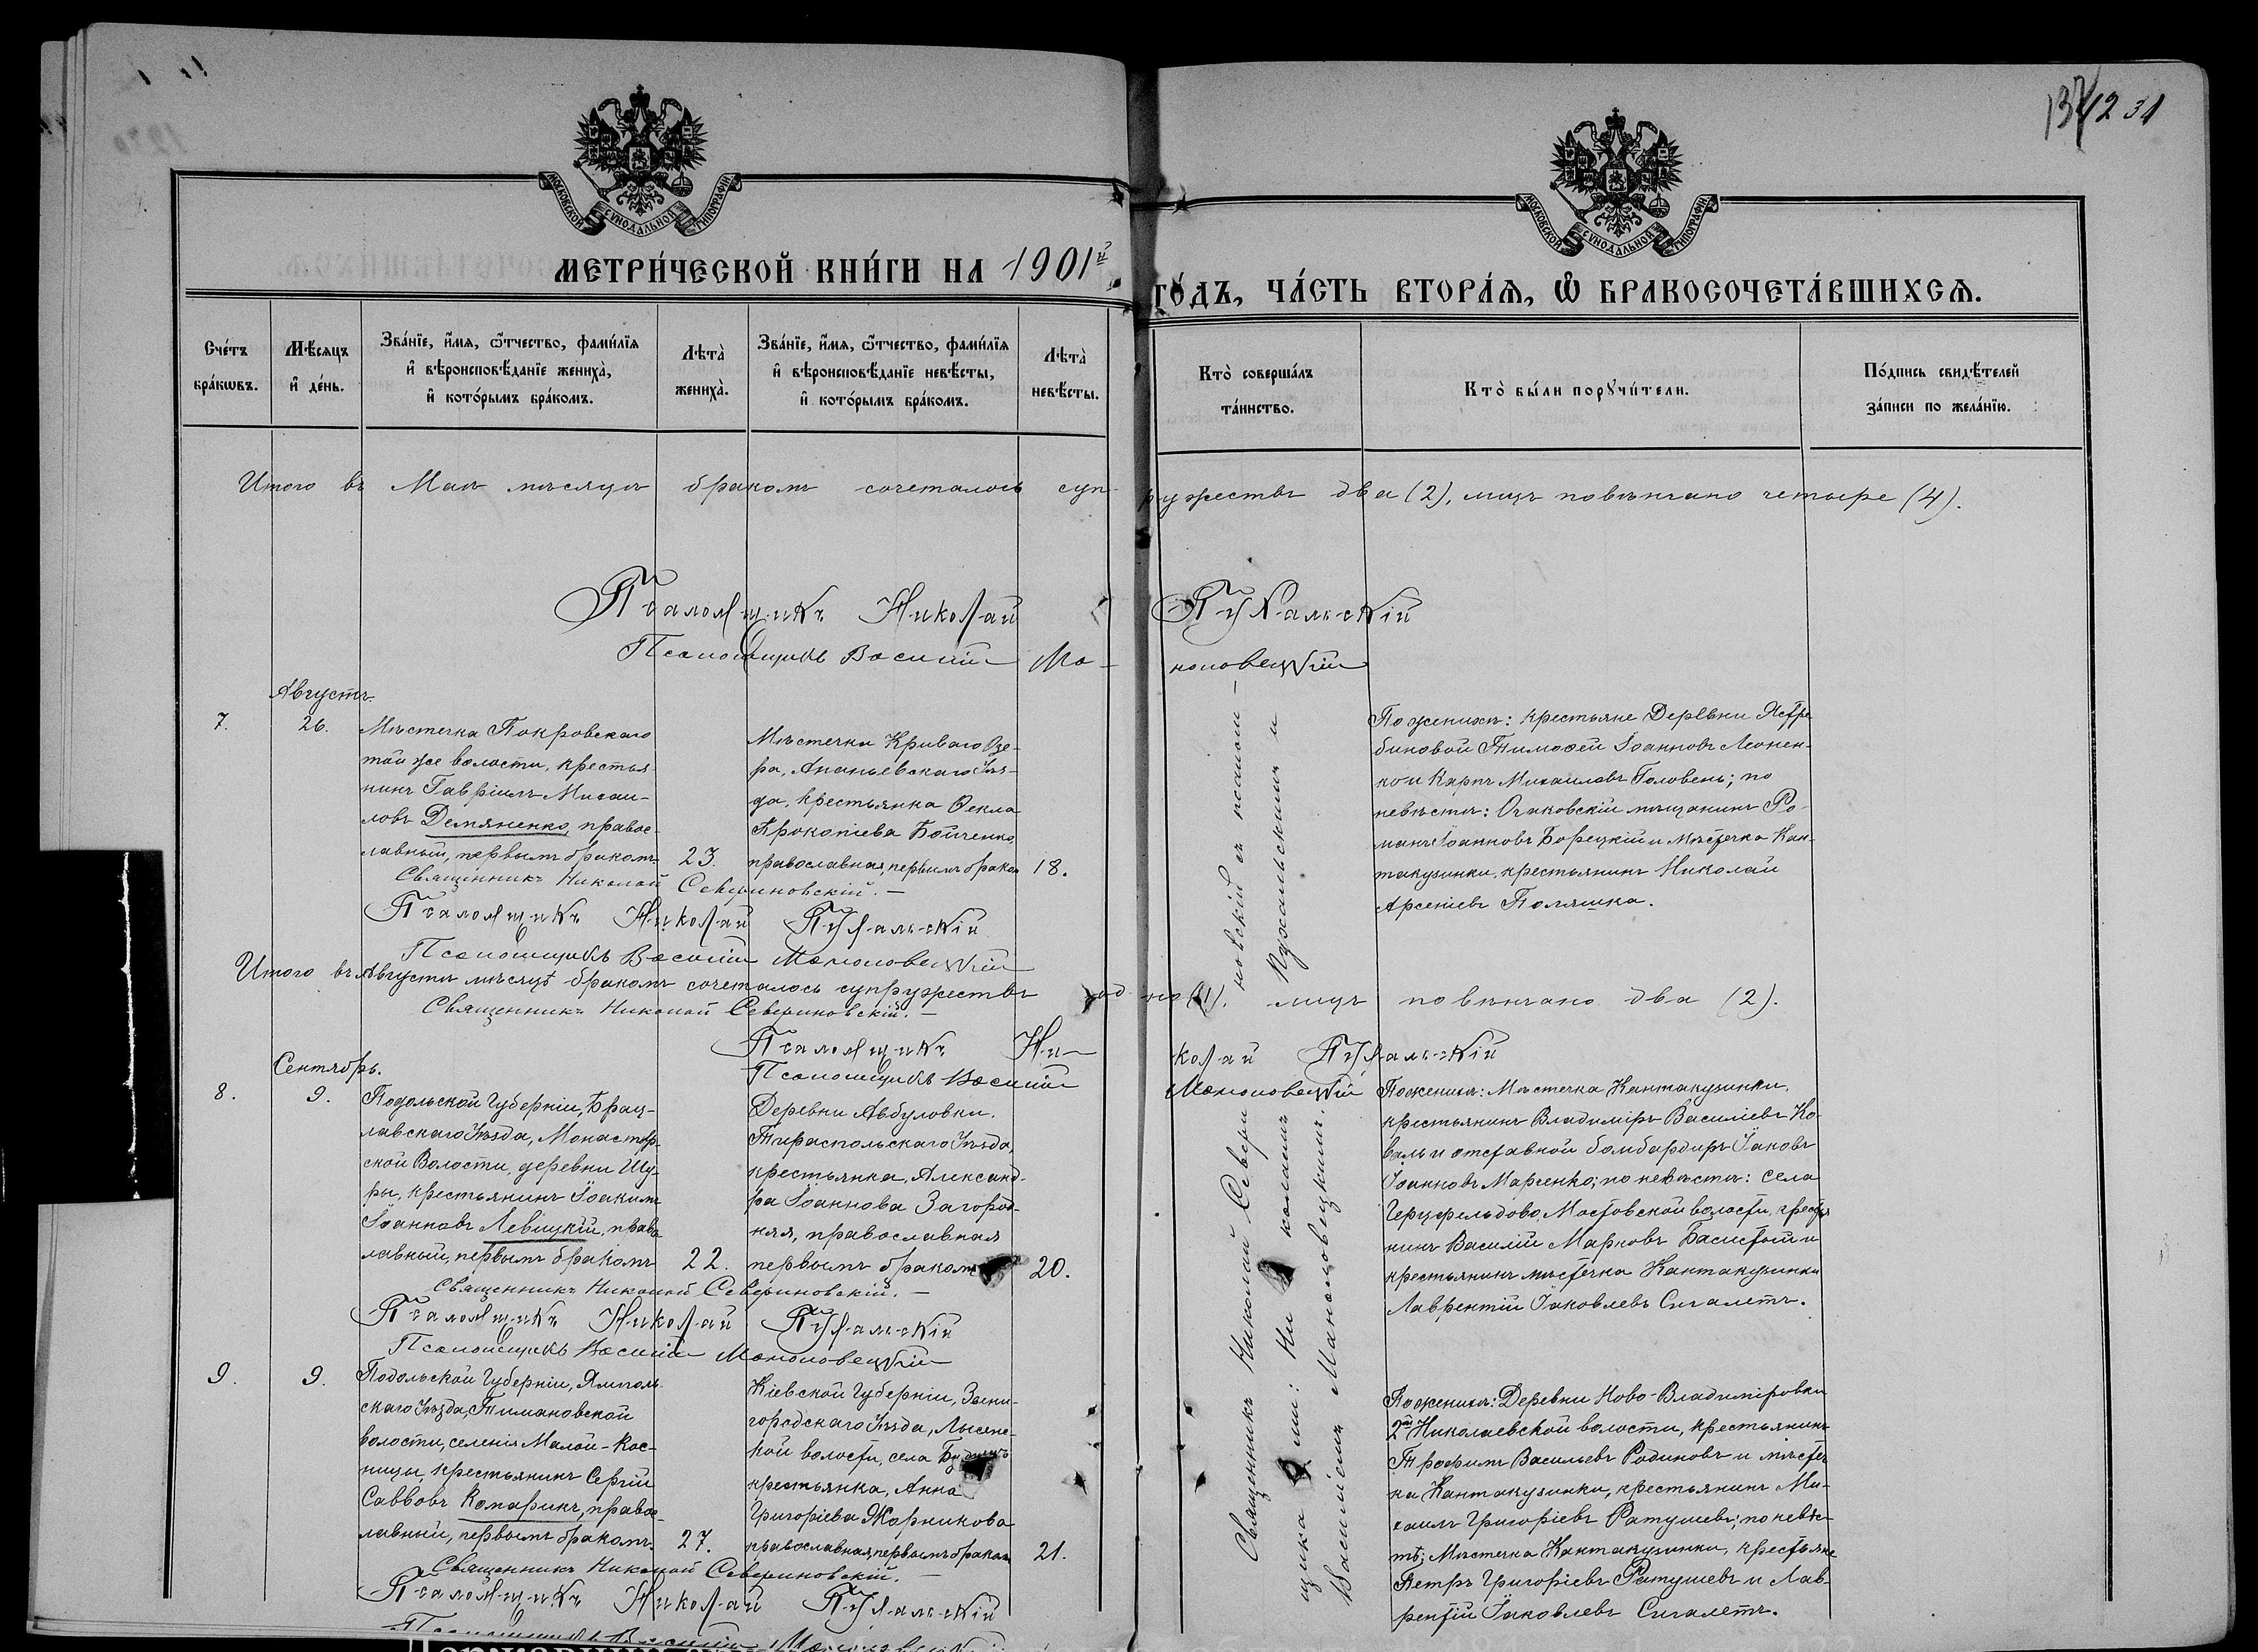 137 1231
МОСКОВСКОЙ СѴНОДАЛЬНОЙ ТИПОГРАФІИ
МОСКОВСКОЙ СѴНОДАЛЬНОЙ ТИПОГРАФІИ
МЕТРИ́ЧЕСКОЙ КНИ́ГИ НА 1901й
ГО́ДЪ, ЧА́СТЬ ВТОРА́Ѧ, Ѡ҆ БРАКОСОЧЕТА́ВШИХСѦ.
Сче́тъ
бра́кѡвъ.
Мѣ́сяцъ
и҆ де́нь.
Зва́нїе, и҆́мѧ, ѻ҆́тчество, фами́лїѧ
и҆ вѣроисповѣ́данїе жениха̀,
и҆ кото́рымъ бра́комъ.
Лѣта̀
жениха̀.
Зва́нїе, и҆́мѧ, ѻ҆́тчество, фами́лїѧ
и҆ вѣроисповѣ́данїе невѣ́сты,
и҆ кото́рымъ бра́комъ.
Лѣта̀
невѣ́сты.
Кто̀ соверша́лъ
та́инство.
Кто̀ бы́ли порꙋчи́тели.
По́дпись свидѣ́телей
за́писи по жела́нїю.
Итого въ Маѣ мѣсяцѣ бракомъ сочеталось супружествъ два (2), лицъ повѣнчано четыре (4).
Псаломщикъ Николай Пужальскій
Псаломщикъ Василій Маноловецкій
Августъ.
7.
26.
Мѣстечка Покровскаго
той же волости, крестья-
нинъ Гавріилъ Михаи-
ловъ Демяненко, правос-
лавный, первымъ бракомъ.
23.
Мѣстечка Криваго Озе-
ра, Ананьевскаго Уѣз-
да, крестьянка Ѳекла
Прокопіева Бойченко,
православная, первымъ бракомъ
18.
По женихѣ: крестьяне Деревни Ястре-
биновой Тимоѳей Іоанновъ Леонен-
ко и Карпъ Михаиловъ Головень; по
невѣстѣ: Очаковскій мѣщанинъ Ро-
манъ Іоанновъ Борецкій и мѣстечка Кан-
такузинки, крестьянинъ Николай
Арсеніевъ Поляшка.
Священникъ Николай Севериновскій. —
Псаломщикъ Николай Пужальскій
Псаломщикъ Василій Маноловецкій
Итого въ Августѣ мѣсяцѣ бракомъ сочеталось супружествъ одно (1). лицъ повѣнчано два (2).
Священникъ Николай Севериновскій. —
Псаломщикъ Николай Пужальскій
Псаломщикъ Василій Маноловецкій
Сентябрь.
8.
9.
Подольской Губерніи, Брац-
лавскаго Уѣзда, Монастыр-
ской Волости, деревни Щу-
ры, крестьянинъ Іоакимъ
Іоанновъ Левицкій, право-
лавный, первымъ бракомъ
22.
Деревни Авбуловки.
Тираспольскаго Уѣзда,
крестьянка, Александ-
ра Іоаннова Загород-
няя, православная
первымъ бракомъ
20.
По женихѣ: Мѣстечка Кантакузинки,
крестьянинъ Владиміръ Василіевъ Ко-
валь и отставной бомбардиръ Іаковъ
Іоанновъ Марченко; по невѣстѣ: села
Герцфельдово, Мостовской волости, крестья
нинъ Василій Марковъ Басистый и
крестьянинъ мѣстечка Кантакузинки
Лаврентій Іаковлевъ Сигалетъ.
Священникъ Николай Севериновскій. —
Псаломщикъ Николай Пужальскій
Псаломщикъ Василій Маноловецкій
9.
9.
Подольской Губерніи, Ямполь-
скаго Уѣзда, Тимановской
волости, селенія Малой-Кос-
ницы, крестьянинъ Сергій
Саввовъ Комарикъ, правос-
лавный, первымъ бракомъ.
27.
Кіевской Губерніи, Звени-
городскаго Уѣзда, Лысен-
кой волости, села
крестьянка, Анна
Григоріева Жорникова
православная, первымъ бракомъ
21.
По женихѣ: Деревни Ново-Владиміровки
2й Николаевской волости, крестьянинъ
Трофимъ Васильевъ Родиновъ и мѣстеч
ка Кантакузинки, крестьянинъ Ми-
хаилъ Григоріевъ Ратушевъ; по невѣс-
тѣ; Мѣстечка Кантакузинки, крестьяне
Петръ Григоріевъ Ратушевъ и Лав-
рентій Іаковлевъ Сигалетъ.
Священникъ Николай Севериновскій. —
Псаломщикъ Николай Пужальскій
Псаломщикъ Василій Маноловецкій
Священникъ Николай Севериновскій съ псалом-
щиками: Николаемъ Пужальскимъ и
Василіемъ Маноловецкимъ.